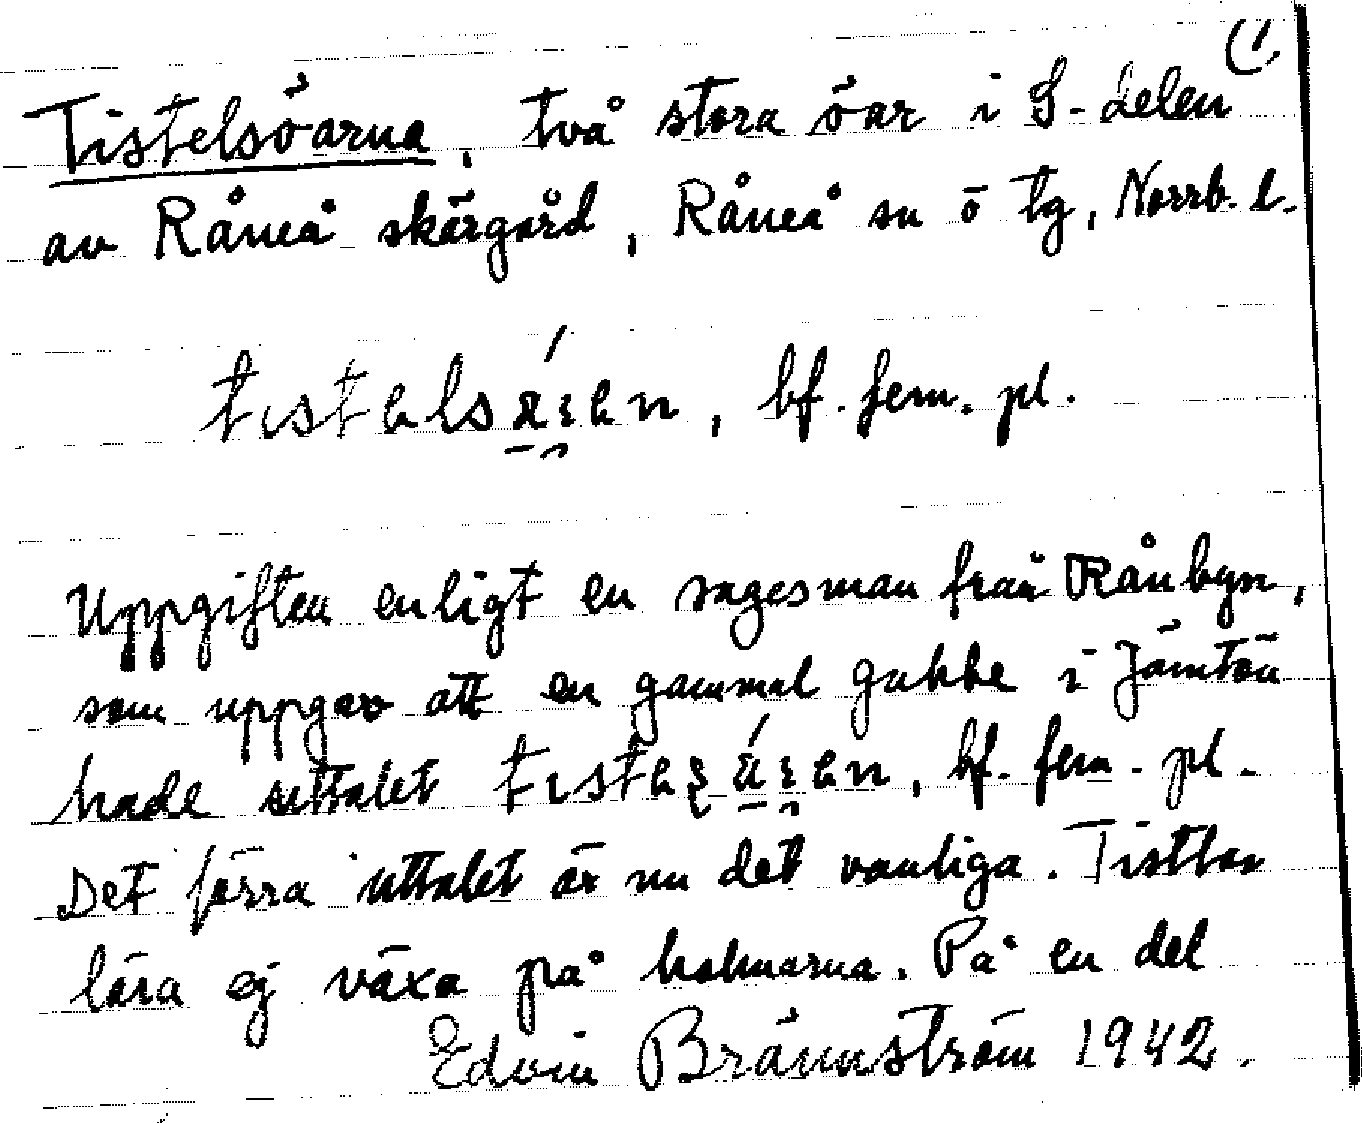 (1.
Tistelsöarna, två stora öar i S-delen
av Råneå skärgård, Råneå sn ö tg, Norrb. l.
bf. fem. pl.
Uppgiften enligt en sagesman från Rånbyn,
som uppgav att en gammal gubbe i Jämtön
hade uttalet bf. fem. pl.
Det förra uttalet är nu det vanliga. Tistlar
lära ej växa på holmarna. På en del
Edvin Brännström 1942.